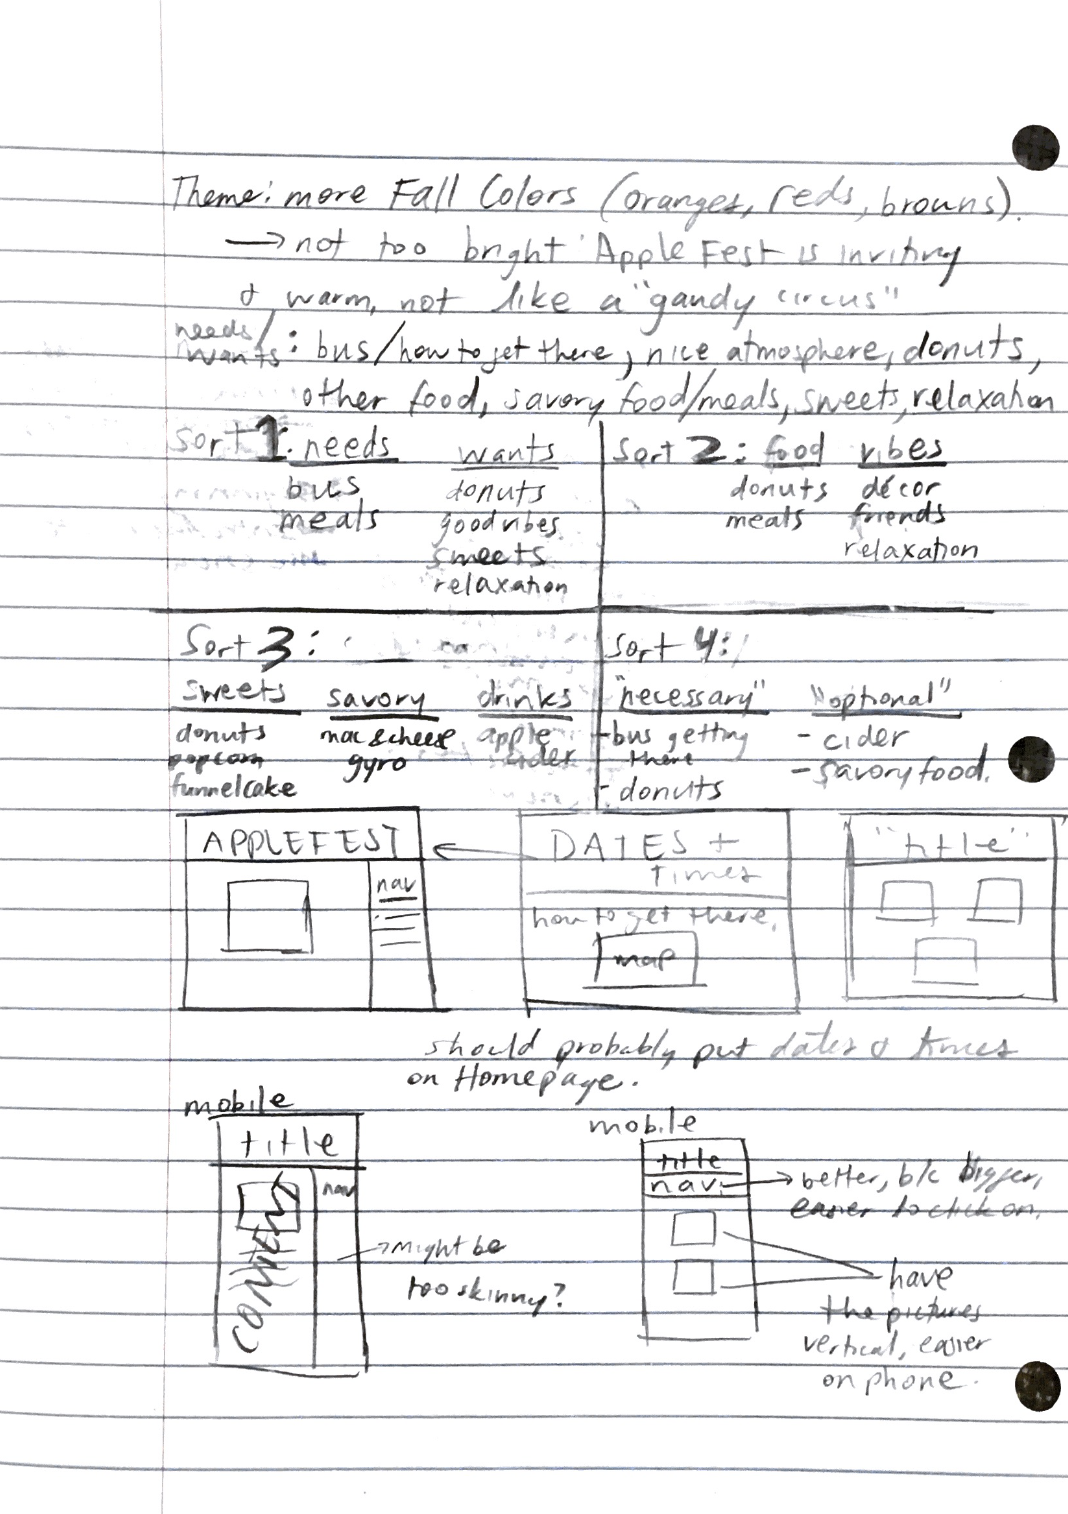 Theme: more Fall Colors (oranges, reds, browns).
→ not too bright Apple Fest is inviting
& warm, not like a "gandy circus"
needs/
wants: bus/how to get there, nice atmosphere, donuts,
other food, savory food/meals, sweets, relaxation
Sort 1: needs wants
bus donuts
meals good vibes
sweets
relaxation
Sort 2: food vibes
donuts décor
meals friends
relaxation
Sort 3:
sweets savory drinks
donuts mac & cheese apple
popcorn gyro cider
funnelcake
Sort 4:
"necessary" "optional"
- bus getting - cider
there - savory food.
- donuts
APPLEFEST
nav
DATES +
times
how to get there.
map
"title"
should probably put dates & times
on Homepage.
mobile
title
nav
CONTENT
→ might be
too skinny?
mobile
title
nav. → better, b/c bigger,
easier to click on.
have
the pictures
vertical, easier
on phone.